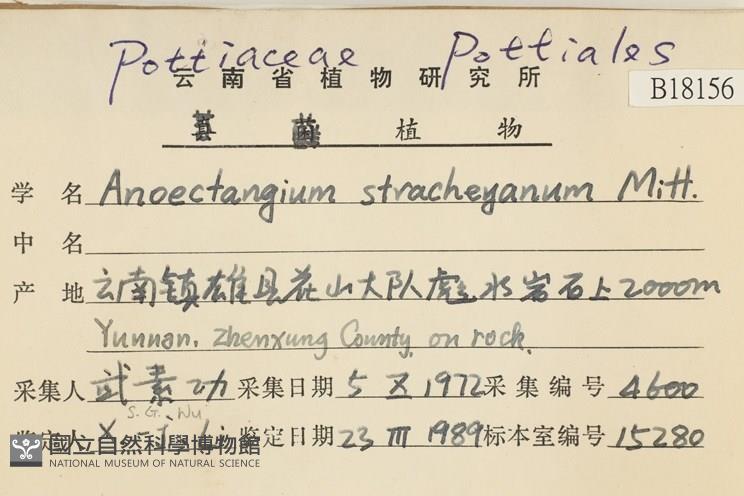 Pottiaceae Pottiales
云南省植物研究所
B18156
植物
学名 Anoectangium stracheyanum Mitt.
中名
产地 云南镇雄县花山大队 水 岩石上 2000m
Yunnan, Zhenxung County, on rock.
采集人 武素功 采集日期 5 X 1972 采集编号 4600
S.G. Wu
鉴定人 鉴定日期 23 III 1989 标本室编号 15280
國立自然科學博物館
NATIONAL MUSEUM OF NATURAL SCIENCE